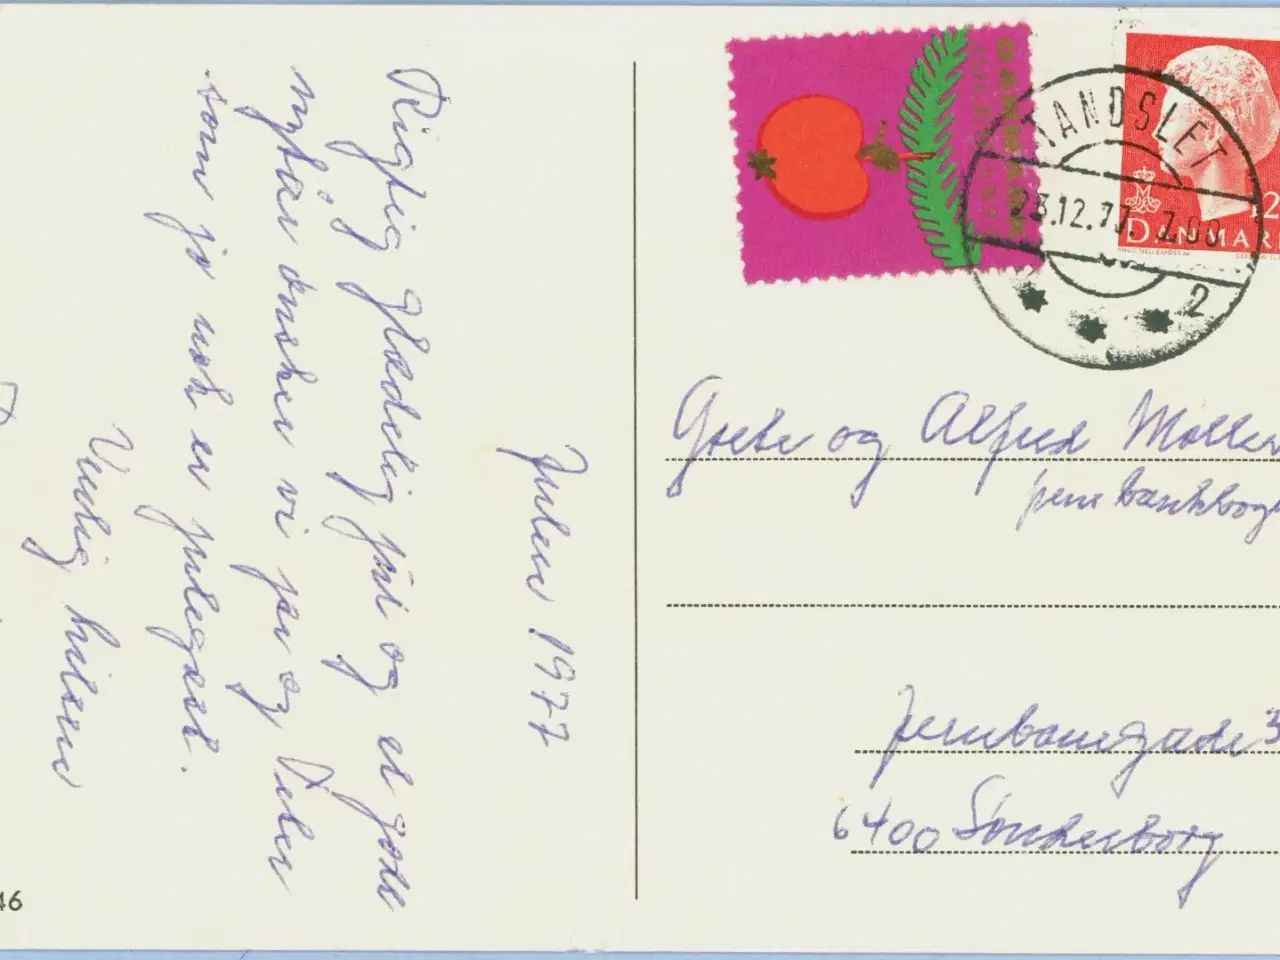 Julen 1977
Rigtig glædelig jul og et godt
nytår ønsker vi jer og
som jo nok er julegæst.
Venlig hilsen
46
DANMARK
TANDSLET
23.12.77. 7.00
2
DANMAR
12
Grete og Alfred Møller
Jernbanegade 3
6400 Sønderborg